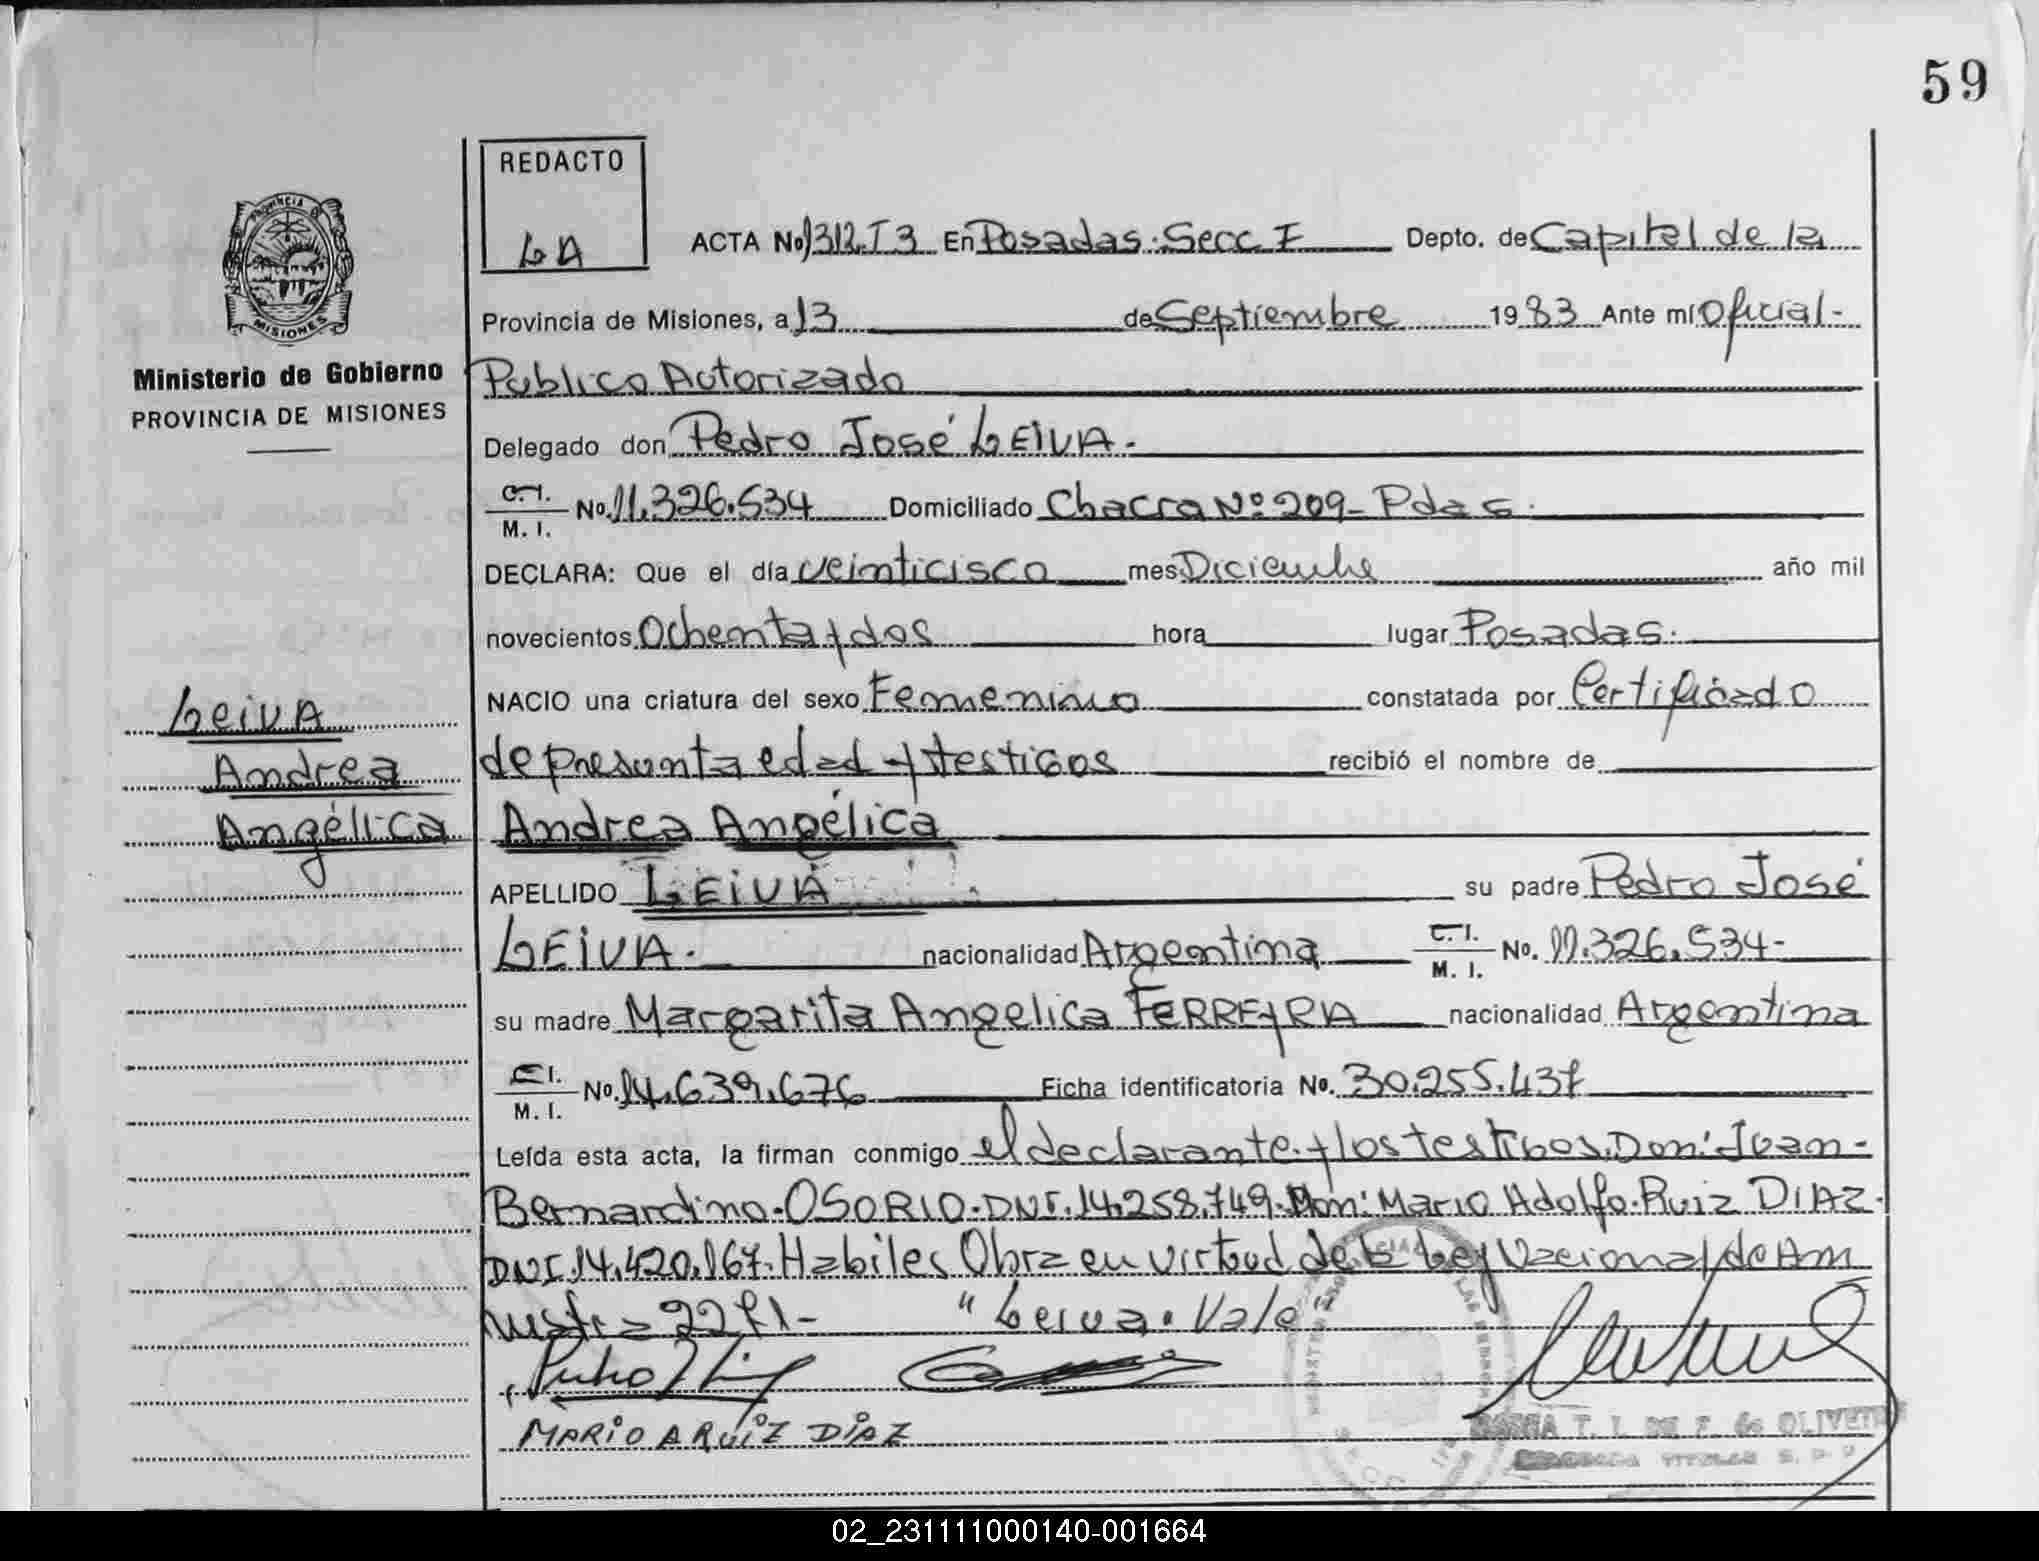 59
REDACTO
LA
ACTA No 1312.T3 En Posadas. Secc I Depto. de Capital de la
Provincia de Misiones, a 13 de Septiembre 1983 Ante mí Oficial-
Publico Autorizado
Delegado don Pedro José LEIVA.
C.I. M.I. No. 11.326.534 Domiciliado Chacra Nº 209- Pdas.
DECLARA: Que el día veinticisco mes Diciembre año mil
novecientos Ochenta y dos hora lugar Posadas.
NACIO una criatura del sexo Femenino constatada por Certificado
de presunta edad y testigos recibió el nombre de
Andrea Angélica
APELLIDO LEIVA su padre Pedro José
LEIVA. nacionalidad Argentina C.I. M.I. No. 11.326.534-
su madre Margarita Angelica FERREyRA nacionalidad Argentina
C.I. M.I. No. 14.639.676 Ficha identificatoria No. 30.255.437
Leída esta acta, la firman conmigo el declarante y los testigos. Don: Juan-
Bernardino. OSORIO. DNI. 14.258.749. Don: Mario Adolfo. Ruiz DIAZ.
DNI. 14.420.167. Habiles Obra en virtud de la Ley Nacional de Am
nistia 2271- "Leiva. Vale"
MARIO A RUIZ DIAZ
T. I. DE F. de OLIVEIRA
TITULAR
PROVINCIA DE
MISIONES
Ministerio de Gobierno
PROVINCIA DE MISIONES
Leiva
Andrea
Angélica
02_231111000140-001664